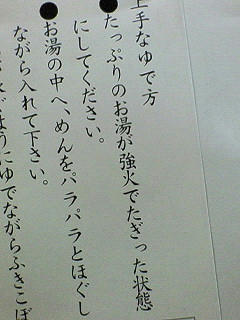 上手なゆで方
●たっぷりのお湯が強火でたぎった状態
にしてください。
●お湯の中へ、めんをパラパラとほぐし
ながら入れて下さい。
ようにゆでながらふきこぼ